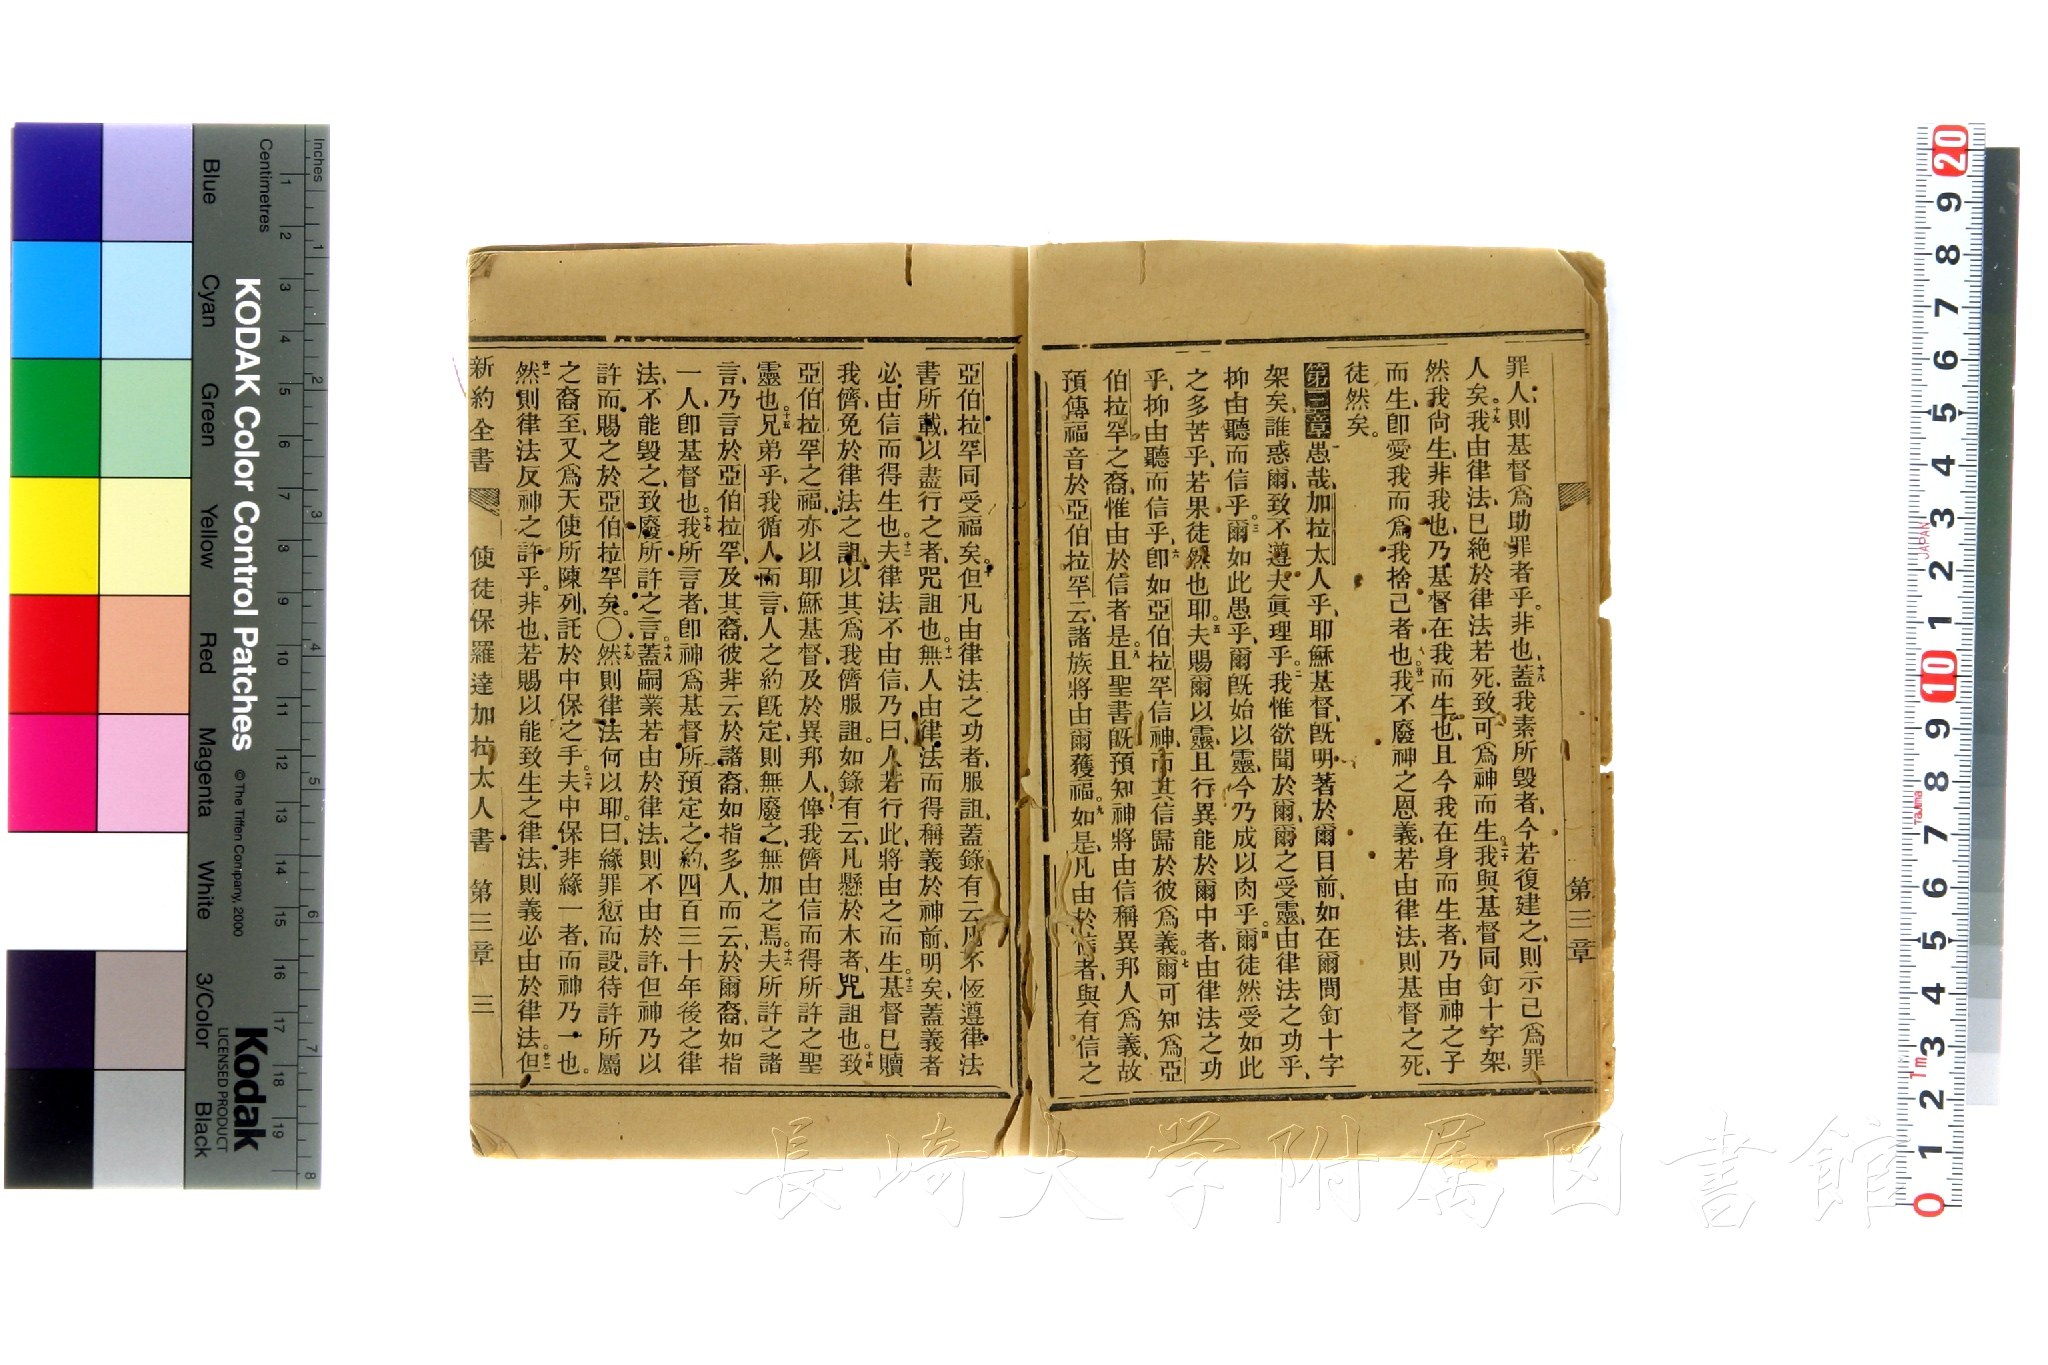 罪人、則基督爲助罪者乎。非也、十八蓋我素所毀者、今若復建之、則示己爲罪
人矣。十九我由律法、已絶於律法若死、致可爲神而生。二十我與基督同釘十字架、
然我尚生、非我也、乃基督在我而生也、且今我在身而生者、乃由神之子
而生、即愛我而爲我捨己者也。廿一我不廢神之恩義、若由律法、則基督之死、
徒然矣。
第三章一愚哉、加拉太人乎、耶穌基督、旣明著於爾目前、如在爾間釘十字
架矣、誰惑爾、致不遵夫眞理乎。二我惟欲聞於爾、爾之受靈、由律法之功乎、
抑由聽而信乎。三爾如此愚乎、爾旣始以靈、今乃成以肉乎。四爾徒然受如此
之多苦乎、若果徒然也耶。五夫賜爾以靈、且行異能於爾中者、由律法之功
乎、抑由聽而信乎。六即如亞伯拉罕信神、而其信歸於彼爲義。七爾可知爲亞
伯拉罕之裔、惟由於信者是。八且聖書旣預知神將由信稱異邦人爲義、故
預傳福音於亞伯拉罕云、諸族將由爾獲福。九如是、凡由於信者、與有信之
第三章
亞伯拉罕同受福矣。十但凡由律法之功者、服詛、蓋錄有云、凡不恆遵律法
書所載、以盡行之者、咒詛也。十一無人由律法而得稱義於神前、明矣、蓋義者
必由信而得生也。十二夫律法不由信、乃曰、人若行此、將由之而生。十三基督已贖
我儕、免於律法之詛、以其爲我儕服詛。如錄有云、凡懸於木者、咒詛也。十四致
亞伯拉罕之福、亦以耶穌基督、及於異邦人、俾我儕由信而得所許之聖
靈也。十五兄弟乎、我循人而言、人之約旣定、則無廢之、無加之焉。十六夫所許之諸
言、乃言於亞伯拉罕、及其裔、彼非云於諸裔、如指多人、而云、於爾裔、如指
一人、即基督也。十七我所言者、即神爲基督所預定之約、四百三十年後之律
法、不能毀之、致廢所許之言。十八蓋嗣業若由於律法、則不由於許、但神乃以
許而賜之於亞伯拉罕矣。〇十九然則律法何以耶。曰、緣罪愆而設、待許所屬
之裔至、又爲天使所陳列、託於中保之手。二十夫中保非緣一者、而神乃一也。
廿一然則律法反神之許乎。非也、若賜以能致生之律法、則義必由於律法。廿二但
新約全書 使徒保羅達加拉太人書 第三章 三
KODAK Color Control Patches
© The Tiffen Company, 2000
Kodak
LICENSED PRODUCT
Inches
Centimetres
Blue Cyan Green Yellow Red Magenta White 3/Color Black
1 2 3 4 5 6 7 8 9 10 11 12 13 14 15 16 17 18 19
1 2 3 4 5 6 7 8
20 9 8 7 6 5 4 3 2 1 10 9 8 7 6 5 4 3 2 1 0
JAPAN
TaJima
1m
長崎大学附属図書館